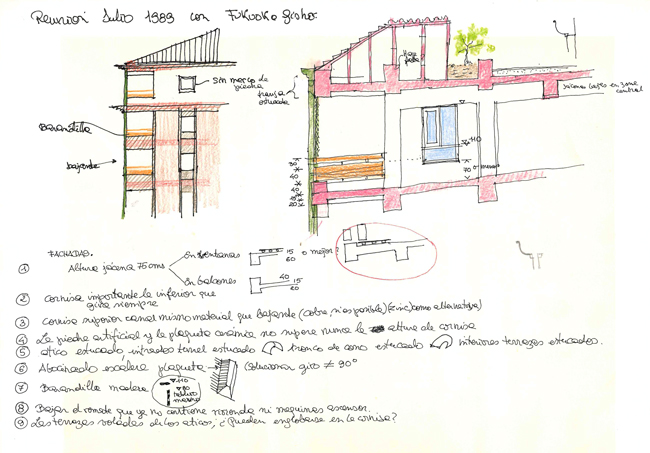 Reunion Julio 1989 con Fukuoka
Sin marco de
piedra
franja
estucada
Barandilla
bajante
110
70
central
FACHADAS.
① Altura jácena 75 cms
En ventanas 15
60
o mejor
En balcones 40 15
20
② Cornisa importante la inferior que
gira siempre
③ Cornisa superior canal mismo material que bajante (cobre, si es posible) (zinc) como alternativa)
④ La piedra artificial y la plaqueta cerámica no supera nunca la altura de cornisa
⑤ atico estucado, intrados tunel estucado tronco de cono estucado interiores terrazas estucados.
⑥ Abocinado escalera plaqueta (solucionar giro ≠ 90°
⑦ Barandilla madera 110
90
⑧ Bajar el remate que ya no contiene ni maquinas ascensor.
⑨ Las terrazas voladas de los aticos, ¿Pueden englobarse en la cornisa?